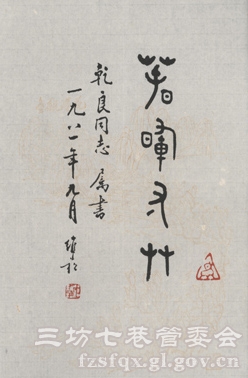 春暉寸艸
乾良同志 属書
一九八一年九月
三坊七巷管委会
fzsfqx.gl.gov.cn